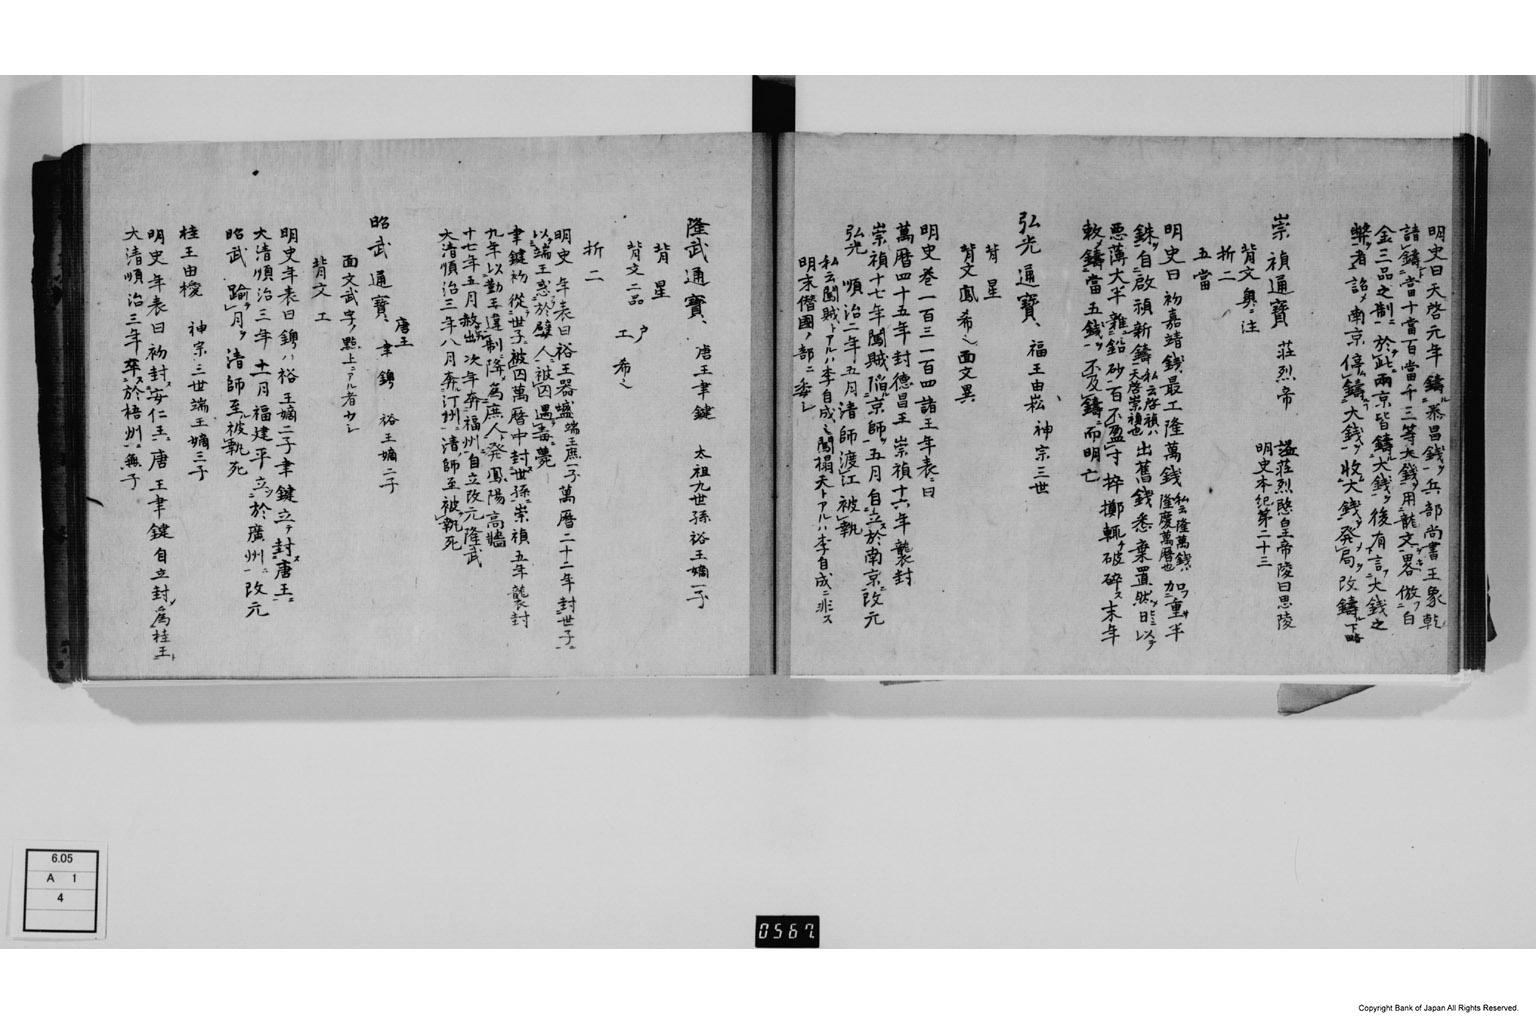 明史曰天啓元年鑄泰昌錢ヲ兵部尚書王象乾
請鑄當十當百當千三等大錢ヲ用龍文畧倣ヲ白
金三品之制ニ於此兩京皆鑄大錢ヲ後有言大錢之
弊者詔メ南京停鑄大錢ヲ收大錢ヲ發局改鑄下略
崇禎通寶 莊烈帝 謚莊烈愍皇帝陵曰思陵
明史本紀第二十三
背文奧ニ注
折二
五當
明史曰初嘉靖錢最工隆萬錢 私云隆萬錢ハ隆慶萬曆也 加重半
銖ヲ自啟禎新鑄 私云啓禎ハ天啓崇禎也 出舊錢悉棄置然日ニ以テ
悪薄大半雜鉛砂百不盈寸捽擲輒破碎ス末年
敕鑄當五錢ヲ不及鑄ニ而明亡
弘光通寶、 福王由崧、神宗三世
背星
背文鳳希之面文異
明史巻一百三一百四諸王年表ニ曰
萬曆四十五年封德昌王崇禎十六年襲封
崇禎十七年闖賊陷京師ヲ五月自立於南京ニ改元
弘光 順治二年五月清師渡江被執
私云闖賊トアルハ李自成之闖榻天トアルハ李自成ニ非ス
明末僭國ノ部ニ委シ
隆武通寶、 唐王聿鍵 太祖九世孫裕王嫡一子
背星
背文二品 戶 工 希之
折二
明史年表曰裕王器墭端王庶一子萬曆二十二年封世子ニ
以端王惑於嬖人ニ被囚遇毒薨
聿鍵初從世子ニ被囚萬曆中封世孫ニ崇禎五年襲封
九年以勤王違制降爲庶人ト發鳳陽高牆
十七年五月赦出次年奔福州ニ自立改元隆武
大清順治三年八月奔汀州ニ清師至被執死
昭武通寶、 唐王聿鐭 裕王嫡二子
面文武字ノ點上ニアル者少シ
背文工
明史年表曰鐭ハ裕王嫡二子聿鍵立テ封唐王ニ
大清順治三年十一月福建平立於廣州ニ改元
昭武踰月ヲ清師至被執死
桂王由榔 神宗三世端王嫡三子
明史年表曰初封安仁王ニ唐王聿鍵自立封爲桂王ト
大清順治三年卒於梧州ニ無子
6.05
A 1
4
0567
Copyright Bank of Japan All Rights Reserved.